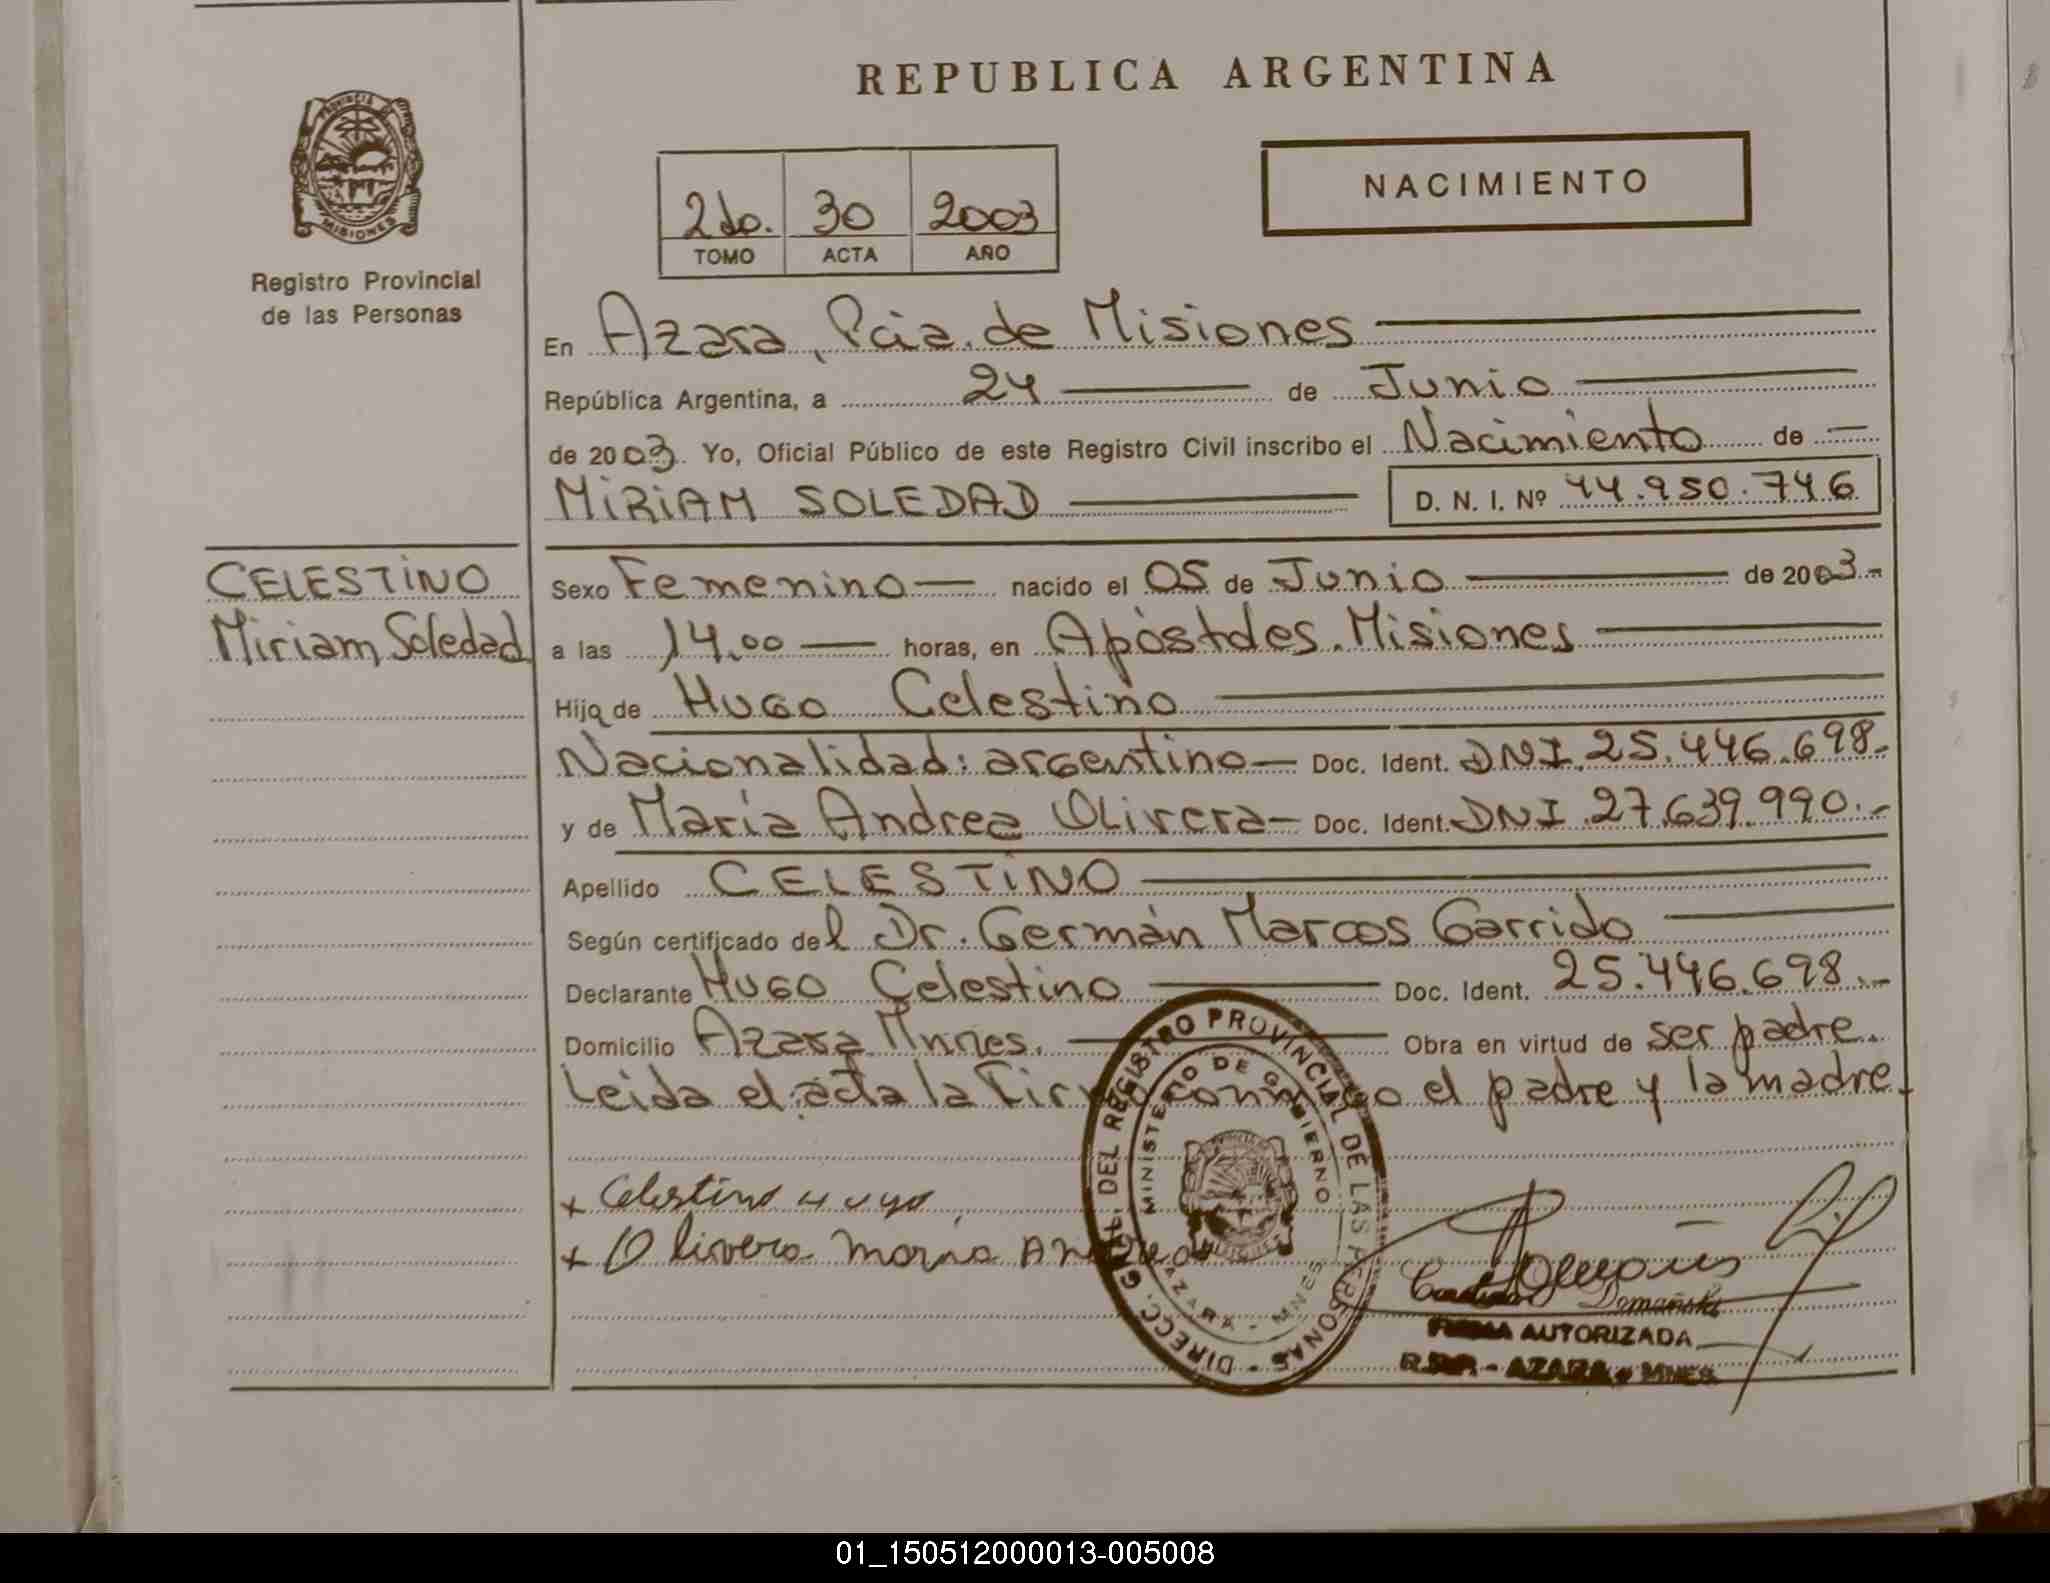 REPUBLICA ARGENTINA
PROVINCIA DE
MISIONES
Registro Provincial
de las Personas
2do. 30 2003
TOMO ACTA AÑO
NACIMIENTO
En Azara, Pcia. de Misiones
República Argentina, a 24 de Junio
de 2003. Yo, Oficial Público de este Registro Civil inscribo el Nacimiento de
MIRIAM SOLEDAD D. N. I. Nº 44.950.746
CELESTINO
Miriam Soledad
Sexo Femenino nacido el 05 de Junio de 2003.-
a las 14.00 horas, en Apóstoles. Misiones
Hija de Hugo Celestino
Nacionalidad: argentino- Doc. Ident. DNI. 25.446.698.-
y de María Andrea Olivera- Doc. Ident. DNI. 27.639.990.-
Apellido CELESTINO
Según certificado del Dr. Germán Marcos Garrido
Declarante Hugo Celestino Doc. Ident. 25.446.698.-
Domicilio Azara Mnnes. Obra en virtud de ser padre.
Leida el acta la Firma conmigo el padre y la madre.
x Celestino Hugo
x Olivera maria Andrea
DIRECC. GRAL. DEL REGISTRO PROVINCIAL DE LAS PERSONAS -
MINISTERIO DE GOBIERNO
AZARA - MNES
Demański
FIRMA AUTORIZADA
R.P.P. - AZARA - MNES
01_150512000013-005008